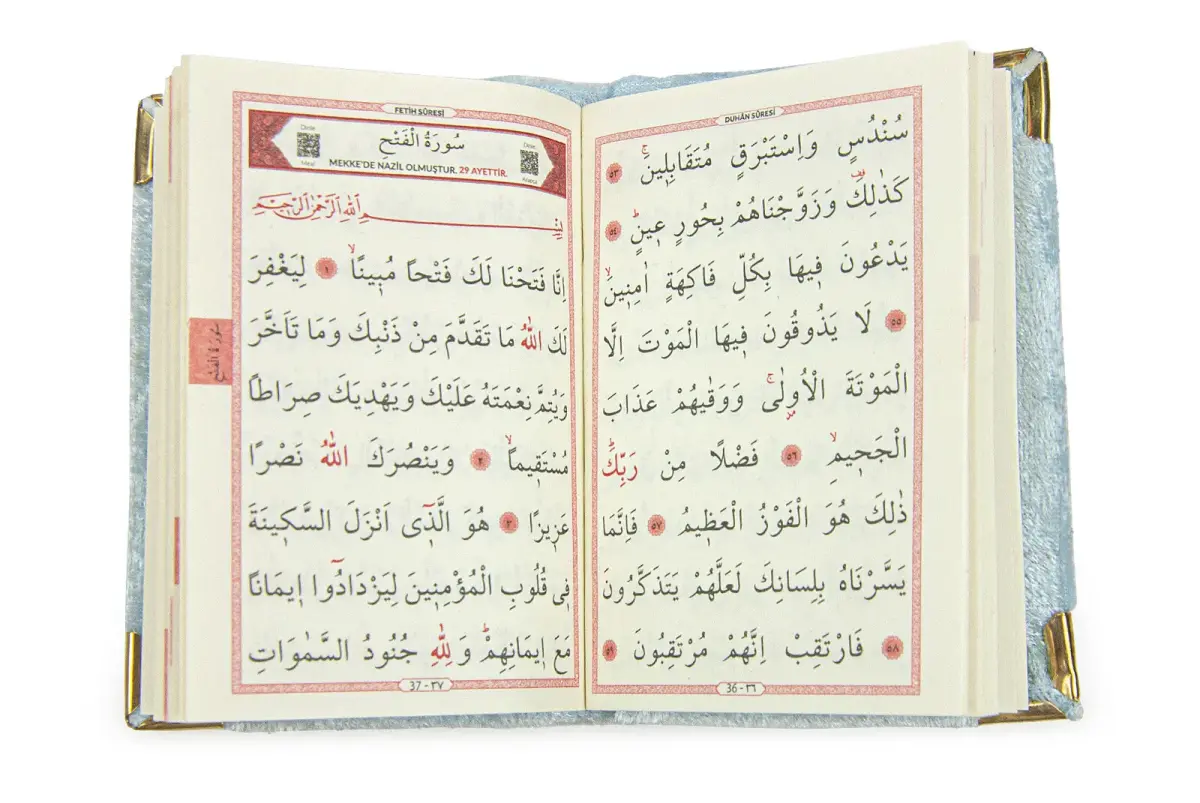 DUHÂN SÛRESİ
سُنْدُسٍ وَاِسْتَبْرَقٍ مُتَقَابِل۪ينَۚ ٥٣
كَذٰلِكَ۠ وَزَوَّجْنَاهُمْ بِحُورٍ ع۪ينٍۜ ٥٤
يَدْعُونَ ف۪يهَا بِكُلِّ فَاكِهَةٍ اٰمِن۪ينَۙ
٥٥ لَا يَذُوقُونَ ف۪يهَا الْمَوْتَ اِلَّا
الْمَوْتَةَ الْاُو۫لٰىۚ وَوَقٰيهُمْ عَذَابَ
الْجَح۪يمِۙ ٥٦ فَضْلًا مِنْ رَبِّكَۜ
ذٰلِكَ هُوَ الْفَوْزُ الْعَظ۪يمُ ٥٧ فَاِنَّمَا
يَسَّرْنَاهُ بِلِسَانِكَ لَعَلَّهُمْ يَتَذَكَّرُونَ
٥٨ فَارْتَقِبْ اِنَّهُمْ مُرْتَقِبُونَ ٥٩
36 - ٣٦
FETİH SÛRESİ
سُورَةُ الْفَتْحِ
MEKKE'DE NAZİL OLMUŞTUR. 29 AYETTİR.
Dinle
Meal
Dinle
Arapça
بِسْمِ اللّٰهِ الرَّحْمٰنِ الرَّح۪يمِ
اِنَّا فَتَحْنَا لَكَ فَتْحًا مُب۪ينًاۙ ١ لِيَغْفِرَ
لَكَ اللّٰهُ مَا تَقَدَّمَ مِنْ ذَنْبِكَ وَمَا تَاَخَّرَ
وَيُتِمَّ نِعْمَتَهُ عَلَيْكَ وَيَهْدِيَكَ صِرَاطًا
مُسْتَق۪يمًاۙ ٢ وَيَنْصُرَكَ اللّٰهُ نَصْرًا
عَز۪يزًا ٣ هُوَ الَّذ۪ٓى اَنْزَلَ السَّك۪ينَةَ
ف۪ى قُلُوبِ الْمُؤْمِن۪ينَ لِيَزْدَادُٓوا ا۪يمَانًا
مَعَ ا۪يمَانِهِمْۜ وَلِلّٰهِ جُنُودُ السَّمٰوَاتِ
37 - ٣٧
سُورَةُ الْفَتْحِ